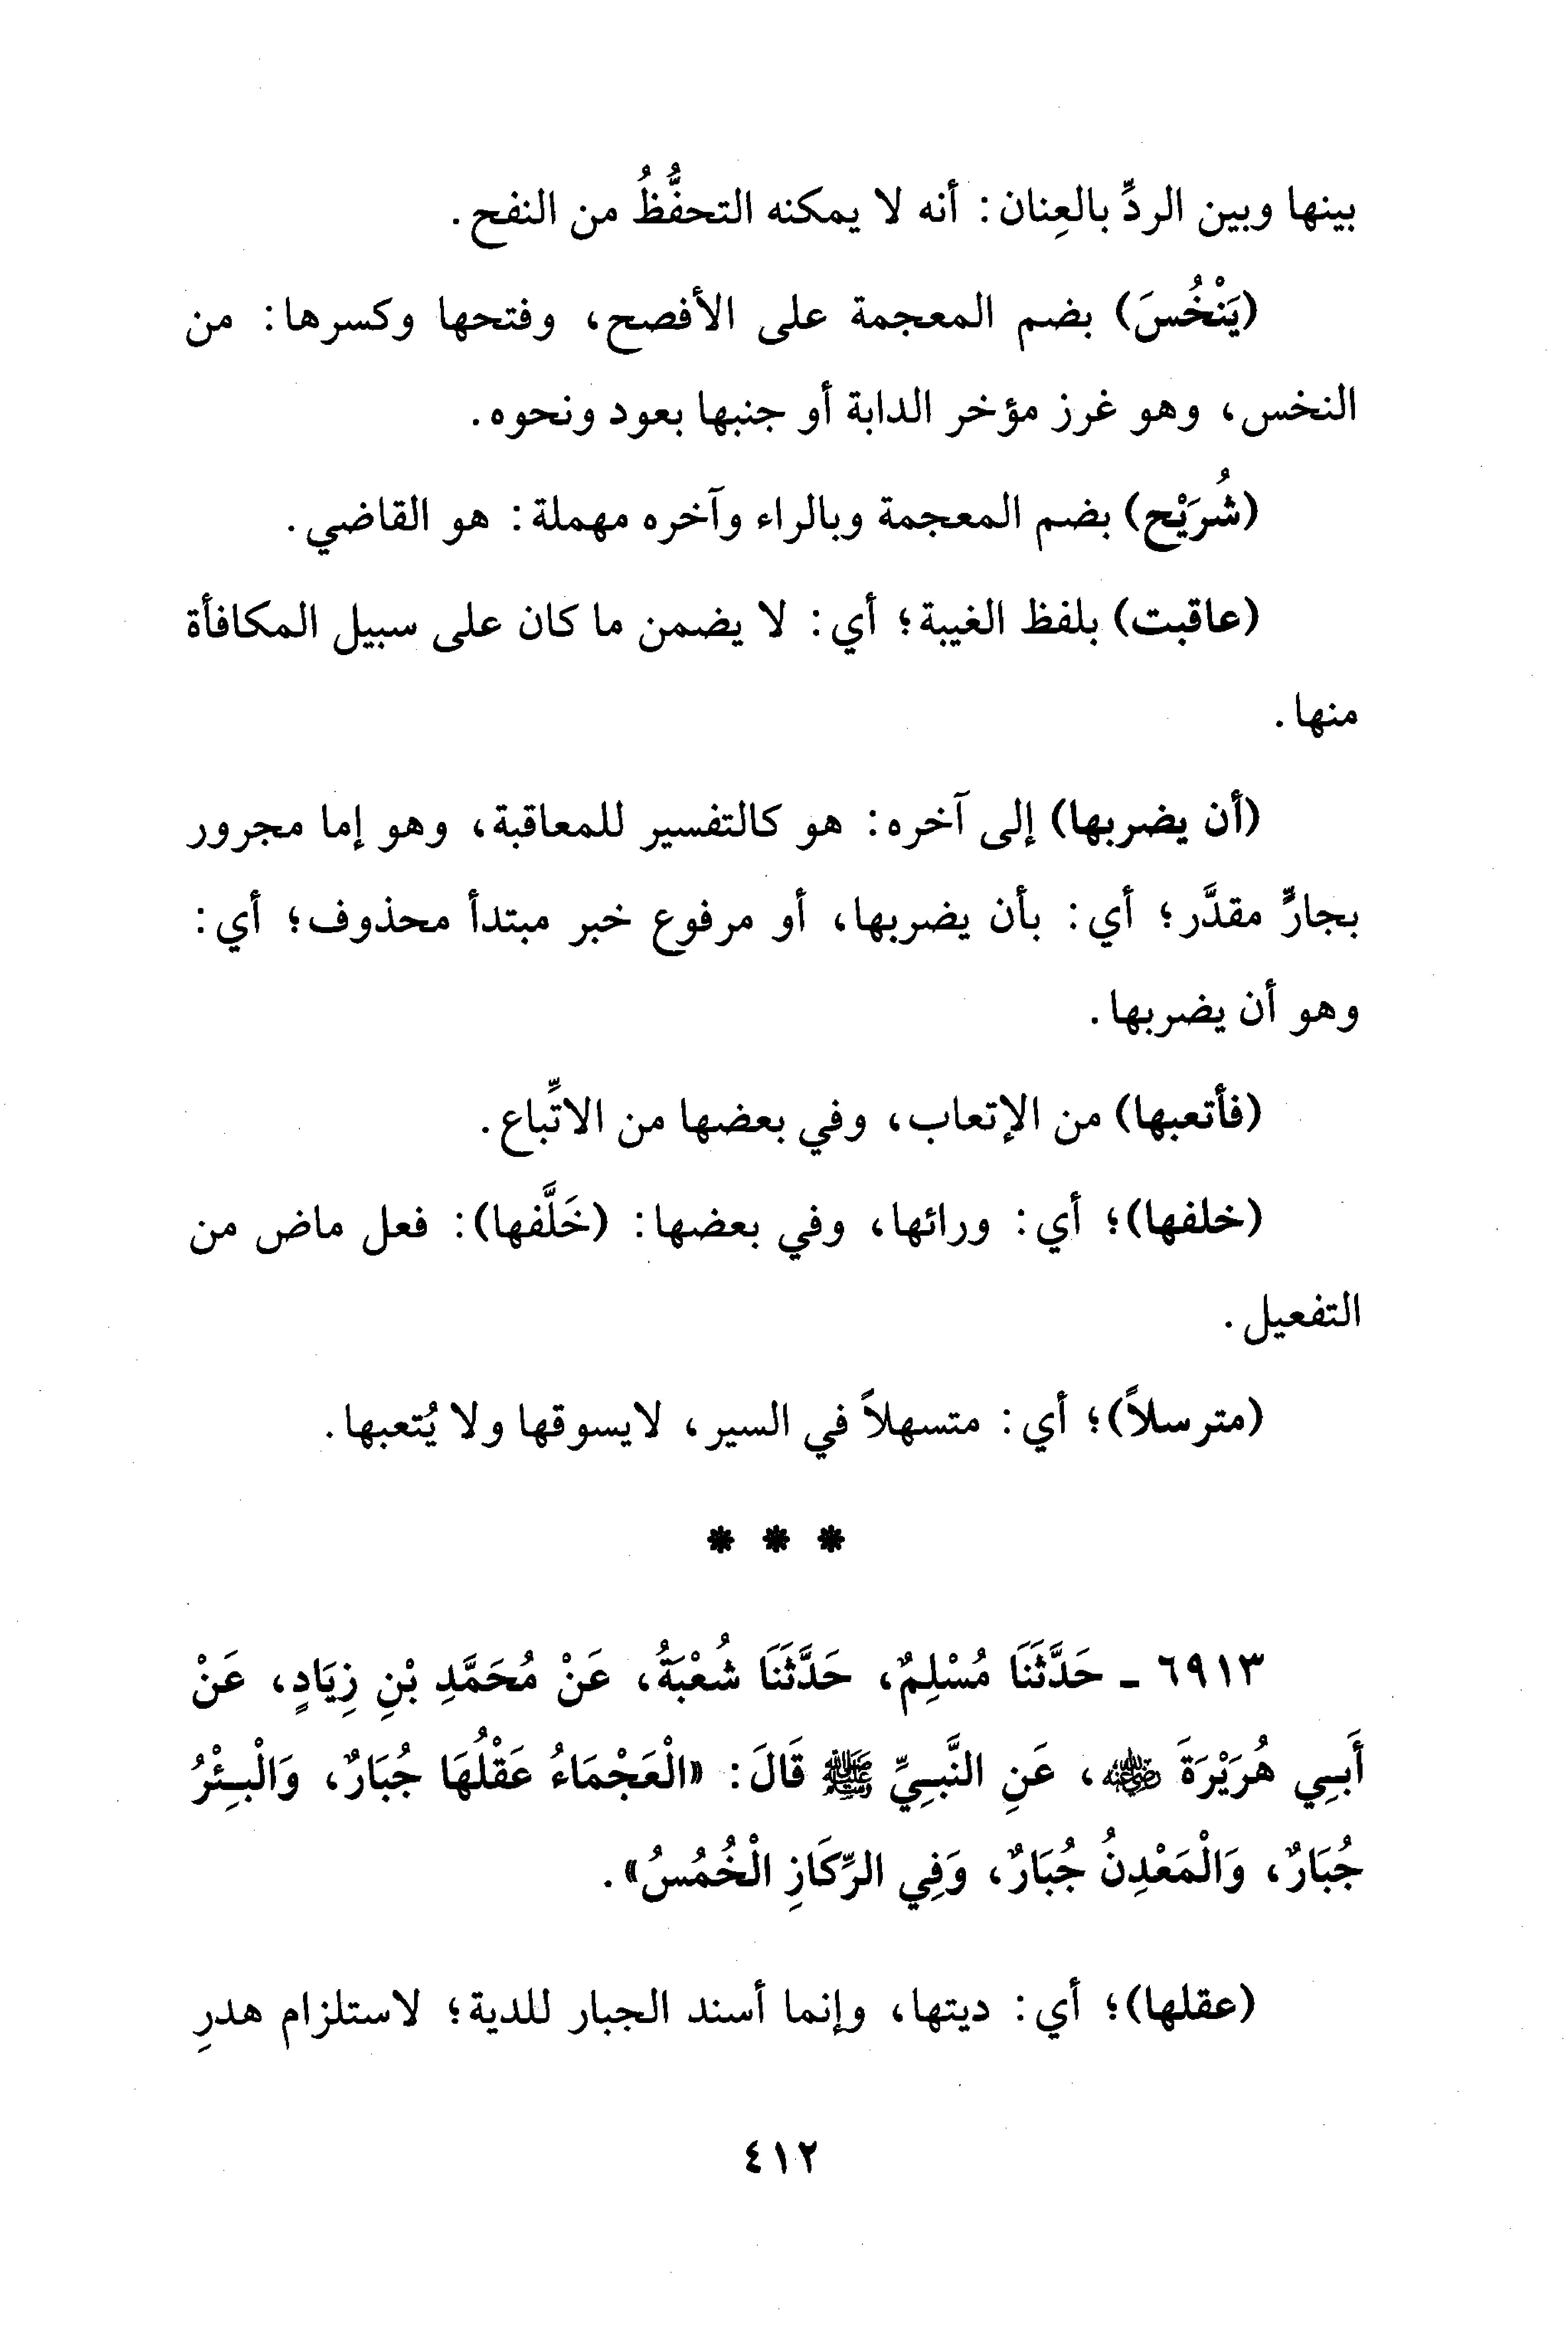 بينها وبين الردِّ بالعِنان: أنه لا يمكنه التحفُّظُ من النفح.
(يَنْخُسَ) بضم المعجمة على الأفصح، وفتحها وكسرها: من
النخس، وهو غرز مؤخر الدابة أو جنبها بعود ونحوه.
(شُرَيْح) بضم المعجمة وبالراء وآخره مهملة: هو القاضي.
(عاقبت) بلفظ الغيبة؛ أي: لا يضمن ما كان على سبيل المكافأة
منها.
(أن يضربها) إلى آخره: هو كالتفسير للمعاقبة، وهو إما مجرور
بجارٍّ مقدَّر؛ أي: بأن يضربها، أو مرفوع خبر مبتدأ محذوف؛ أي:
وهو أن يضربها.
(فأتعبها) من الإتعاب، وفي بعضها من الاتِّباع.
(خلفها)؛ أي: ورائها، وفي بعضها: (خَلَّفها): فعل ماض من
التفعيل.
(مترسلاً)؛ أي: متسهلاً في السير، لايسوقها ولا يُتعبها.
* * *
٦٩١٣ - حَدَّثَنَا مُسْلِمٌ، حَدَّثَنَا شُعْبَةُ، عَنْ مُحَمَّدِ بْنِ زِيَادٍ، عَنْ
أَبِي هُرَيْرَةَ رضي الله عنه، عَنِ النَّبِيِّ ﷺ قَالَ: «الْعَجْمَاءُ عَقْلُهَا جُبَارٌ، وَالْبِئْرُ
جُبَارٌ، وَالْمَعْدِنُ جُبَارٌ، وَفِي الرِّكَازِ الْخُمُسُ».
(عقلها)؛ أي: ديتها، وإنما أسند الجبار للدية؛ لاستلزام هدرِ
٤١٢